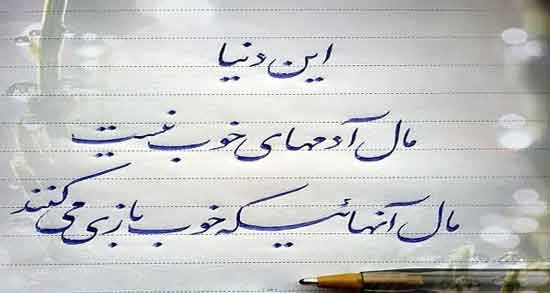 این دنیا
مال آدمهای خوب نیست
مال آنهائیسیکه خوب بازی می کنند